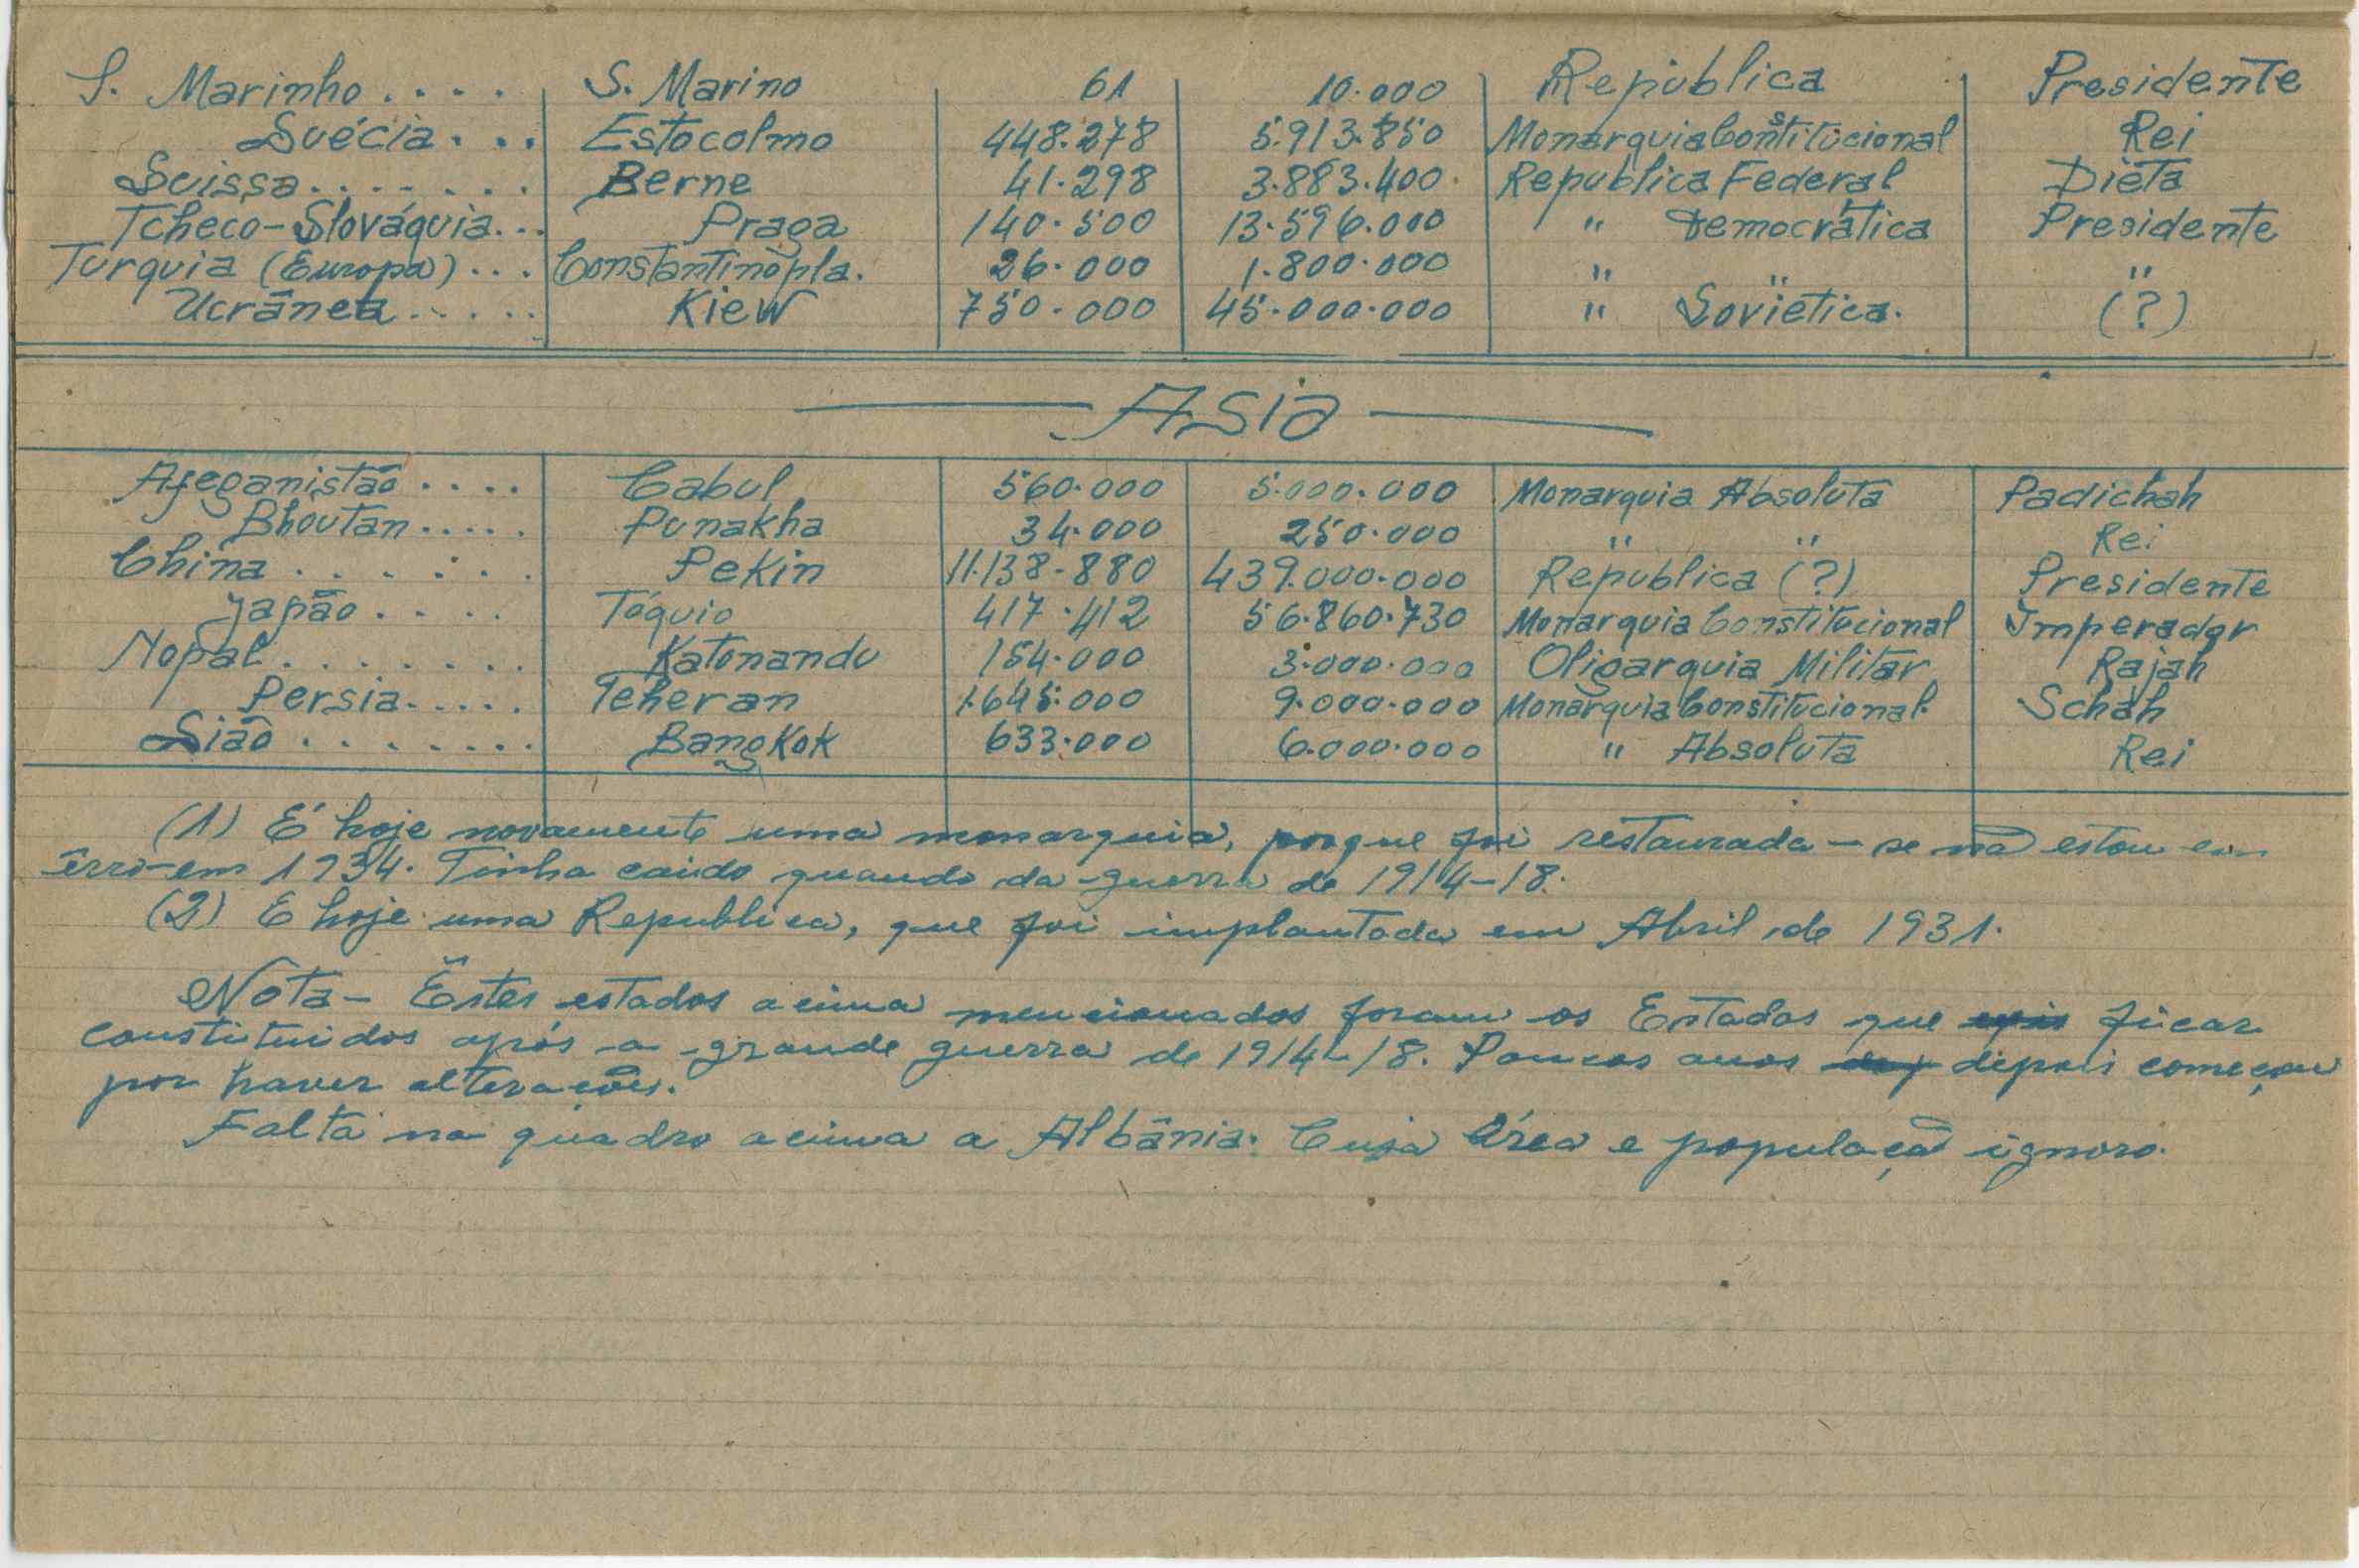 S. Marinho .... S. Marino 61 10.000 República Presidente
Suécia ... Estocolmo 448.278 5.913.850 Monarquia Constitucional Rei
Suissa ....... Berne 41.298 3.883.400 Republica Federal Diéta
Tcheco-Slováquia ... Praga 140.500 13.596.000 " Democrática Presidente
Turquia (Europa) ... Constantinopla. 26.000 1.800.000 " "
Ucrânea ..... Kiew 750.000 45.000.000 " Soviética. (?)
Asia
Afeganistão .... Cabul 560.000 5.000.000 Monarquia Absoluta Padichah
Bhoutan ..... Punakha 34.000 250.000 " " Rei
China ....... Pekin 11.138.880 439.000.000 República (?) Presidente
Japão .... Tóquio 417.412 56.860.730 Monarquia Constitucional Imperador
Nopal ....... Katonandu 154.000 3.000.000 Oligarquia Militar Rajah
Persia ..... Teheran 1.645.000 9.000.000 Monarquia Constitucional. Schah
Sião ........ Bangkok 633.000 6.000.000 " Absoluta Rei
(1) É hoje novamente uma monarquia, porque foi restaurada – se não estou em
êrro – em 1934. Tinha caido quando da guerra de 1914-18.
(2) E hoje uma Republica, que foi implantada em Abril de 1931.
Nota – Êstes estados acima mencionados foram os Estados que ficar
constituidos após a grande guerra de 1914-18. Poucos anos depois começou
por haver alterações.
Falta no quadro acima a Albânia. Cuja área e população ignoro.